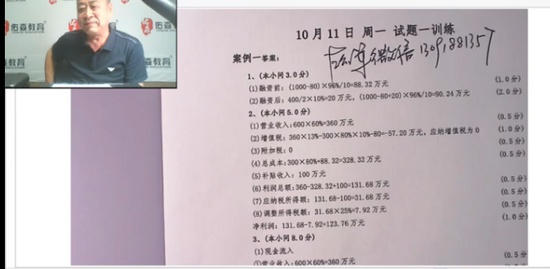 佑森教育
10 月 11 日 周一 试题一训练
案例一答案:
1309188135
1、(本小问 3.0 分)
(1)融资前:(1000-80)×96%/10=88.32 万元 (1.0 分)
(2)融资后:400/2×10%=20 万元,(1000-80+20)×96%/10=90.24 万元 (2.0 分)
2、(本小问 5.0 分)
(1)营业收入:600×60%=360 万元 (0.5 分)
(2)增值税:360×13%-300×80%×10%-80=-57.20 万元,应纳增值税为 0 (1.0 分)
(3)附加税:0 (0.5 分)
(4)总成本:300×80%+88.32=328.32 万元 (0.5 分)
(5)补贴收入:100 万元 (0.5 分)
(6)利润总额:360-328.32+100=131.68 万元 (0.5 分)
(7)应纳税所得额:131.68-100=31.68 万元 (0.5 分)
(8)调整所得税额:31.68×25%=7.92 万元 (0.5 分)
净利润:131.68-7.92=123.76 万元 (1.0 分)
3、(本小问 8.0 分)
(1)现金流入
①营业收入:600×60%=360 万元 (0.5 分)